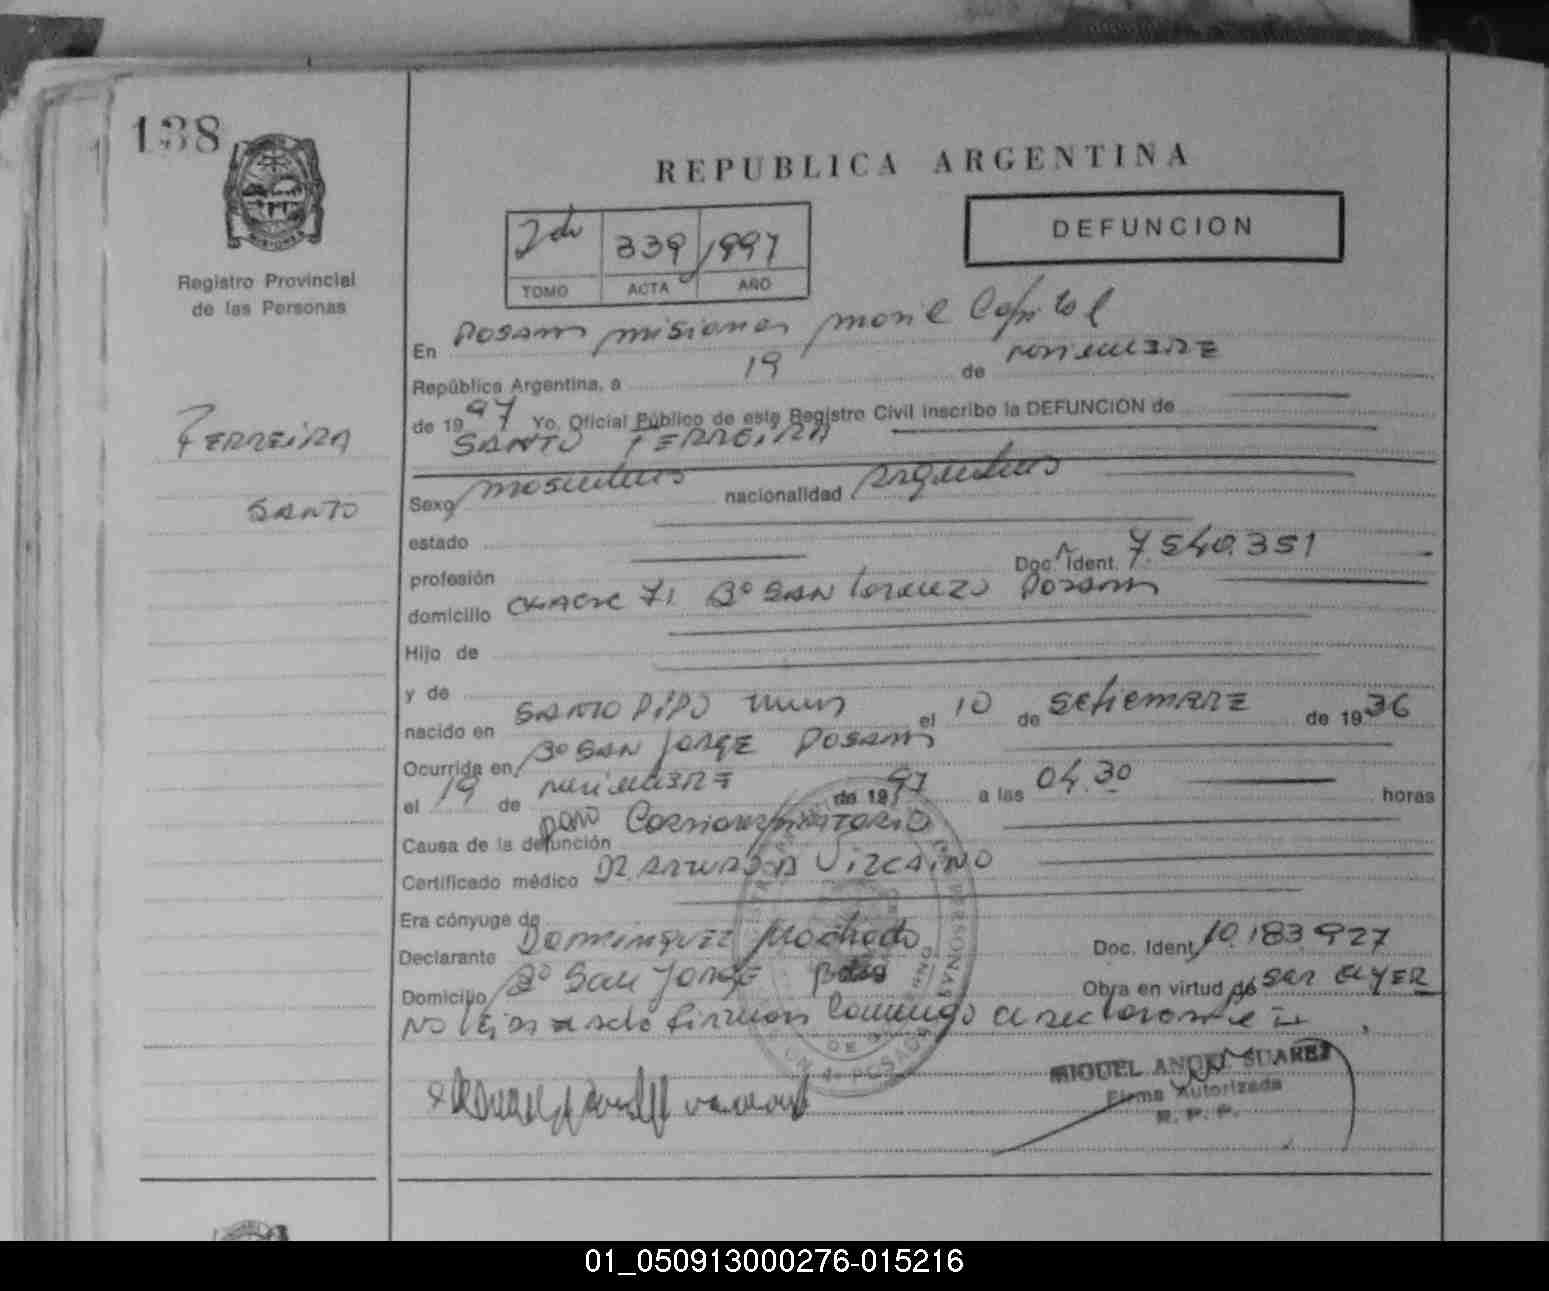 138
REPUBLICA ARGENTINA
2do 339 1997
TOMO ACTA AÑO
DEFUNCION
Registro Provincial
de las Personas
FERREIRA
SANTO
En Posadas misiones Capital
República Argentina, a 19 de noviembre
de 1997 Yo, Oficial Público de este Registro Civil inscribo la DEFUNCION de
SANTO FERREIRA
Sexo masculino nacionalidad Argentino
estado
profesión Doc. Ident. 7.540.351
domicilio CHACRA 71 Bº SAN Lorenzo Posadas
Hijo de
y de
nacido en SANTO PIPO el 10 de SETIEMBRE de 1936
Ocurrida en Bº SAN JORGE POSADAS
el 19 de noviembre de 1997 a las 04.30 horas
Causa de la defunción paro
Certificado médico DR. VIZCAINO
Era cónyuge de
Declarante Machado Doc. Ident. 10.183.927
Domicilio Bº San Jorge Obra en virtud de
MIGUEL ANGEL SUAREZ
Firma Autorizada
R. P. P.
01_050913000276-015216